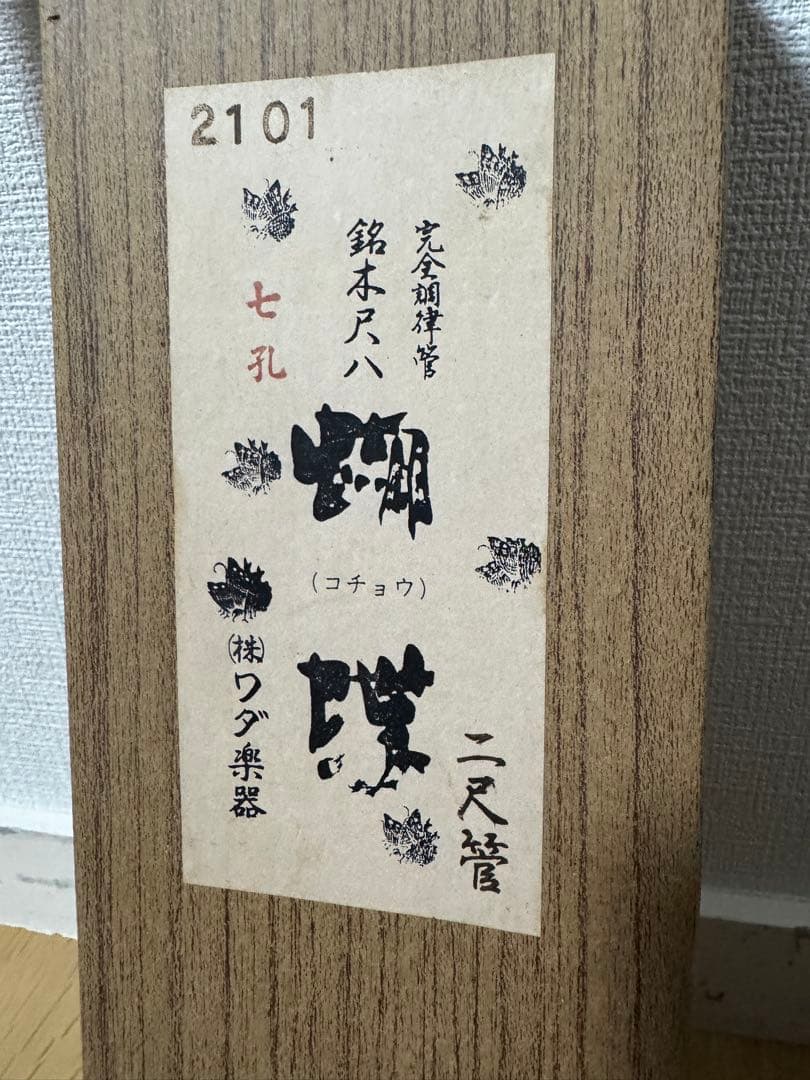 2101
完全調律管
銘木尺八
七孔
蝴
(コチョウ)
蝶
二尺管
㈱ワダ楽器